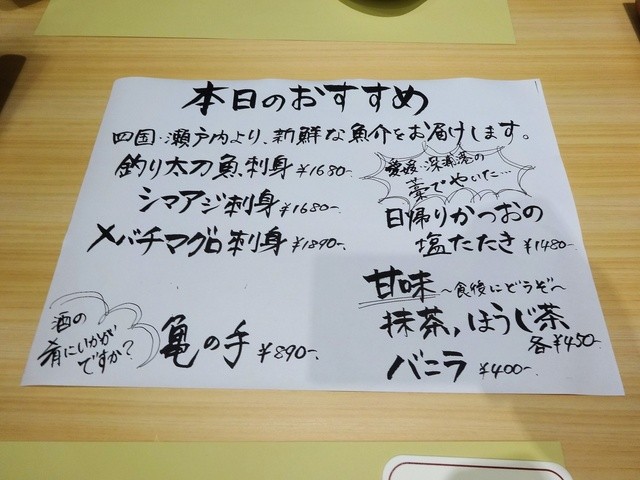 本日のおすすめ
四国・瀬戸内より、新鮮な魚介をお届けします。
釣り太刀魚刺身 ¥1680-.
シマアジ刺身 ¥1680-.
メバチマグロ刺身 ¥1890-.
愛媛・深浦港の
藁でやいた…
日帰りかつおの
塩たたき ¥1480-.
酒の
肴にいかが
ですか?
亀の手 ¥890-.
甘味 〜食後にどうぞ〜
抹茶,ほうじ茶
各¥450-.
バニラ ¥400-.